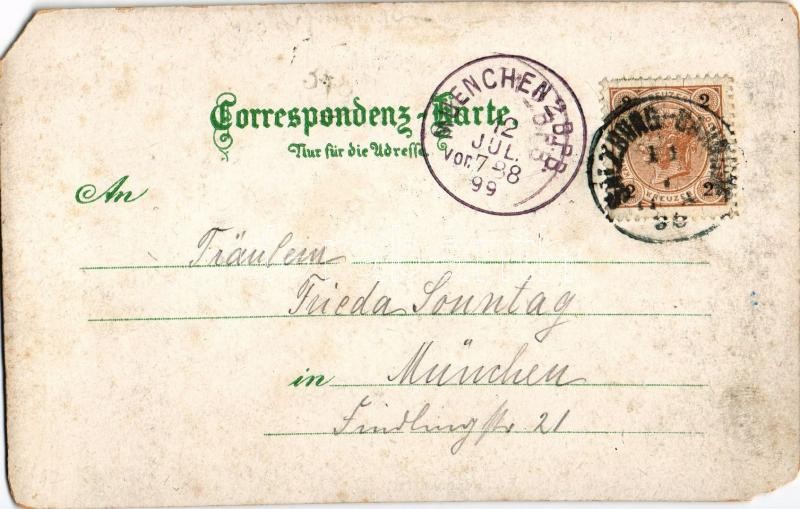 Correspondenz-Karte.
Nur für die Adresse.
MUENCHEN 2 B.P.B
12
JUL.
Vor. 7-88
99
2 KREUZER 2
2 KREUZER 2
11
An
Fräulein
Frieda Sonntag
in München
Findlingstr 21